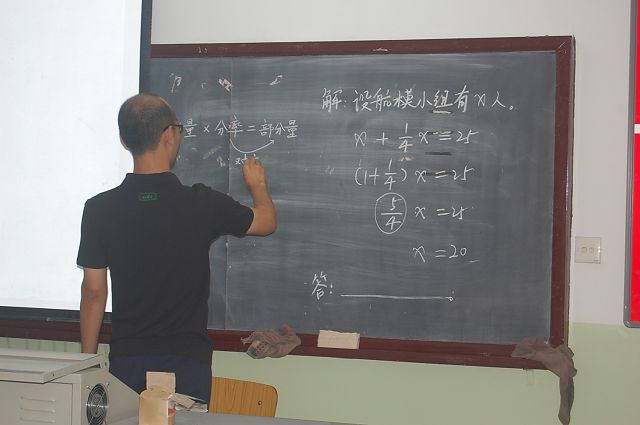 量×分率=部分量
解:设航模小组有x人。
x + 1/4 x = 25
(1+1/4) x = 25
5/4 x = 25
x = 20
答: